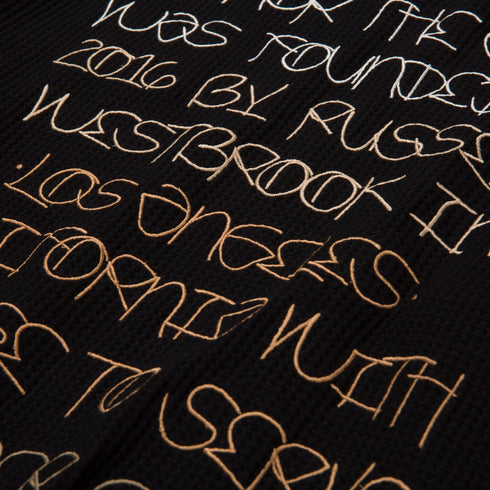 THE
WAS FOUNDED
2016 BY RUSSE
WESTBROOK IN
LOS ANGELES,
IFORNIA WITH
RE TO SERV